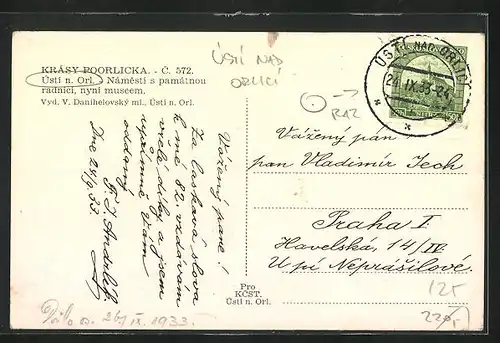 KRÁSY POORLICKA. - Č. 572.
Ústí n. Orl. Náměstí s památnou
radnicí, nyní museem.
Vyd. V. Danihelovský ml., Ústí n. Orl.
ÚSTÍ NAD
ORLICÍ
RAZ
ÚSTÍ NAD ORLICÍ
24.IX.33-21
Vážený pane!
Za laskavá slova
k mé 82. vzdávám
vřelé díky a jsem
upřímně Vám
oddaný
Dne 24/9 33.
Vážený pán
pan Vladimír Zech
Praha I
Havelská, 14/IV.
U pí Neprášilové.
Pro
KČST.
Ústí n. Orl.
26/IX 1933.
125
220,-